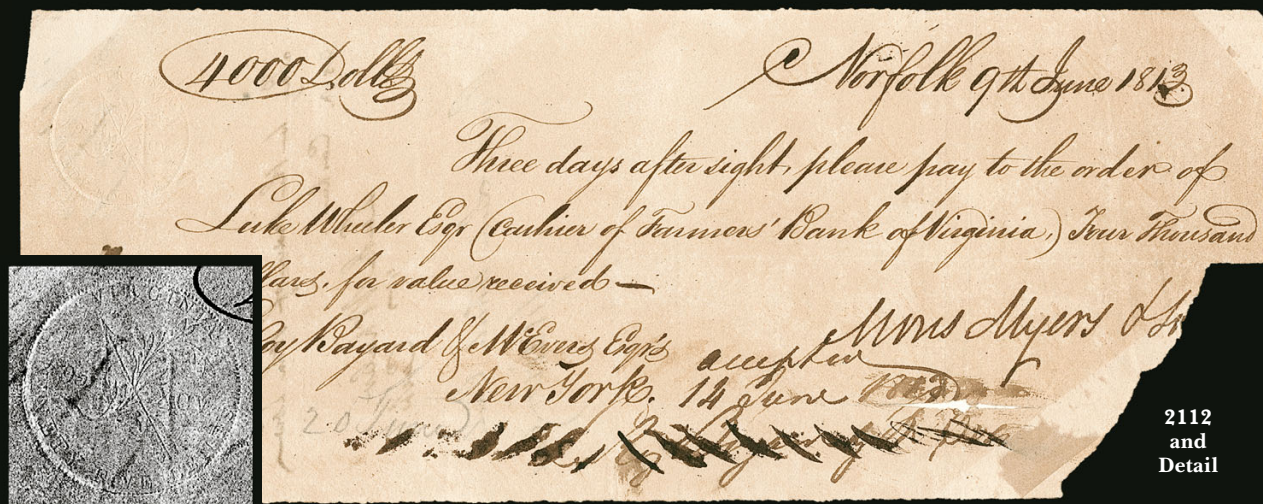 4000 Dolls
Norfolk 9th June 1813
Three days after sight, please pay to the order of
Luke Wheeler Esqr (Cashier of Farmers' Bank of Virginia,) Four Thousand
llars, for value received —
Moses Myers & So
oy Bayard & McEvers Esqrs
New York.
accepted
14 June
VIRGINIA
2112
and
Detail